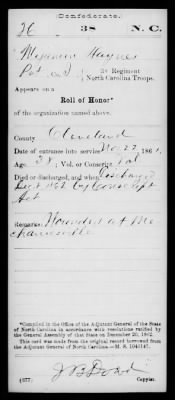 (Confederate.)
H 38 N. C.
Haynes
Pvt, Co. I, 38 Regiment
North Carolina Troops.
Appears on a
Roll of Honor*
of the organization named above.
County Cleveland
Date of entrance into service Nov. 22, 1861.
Age 28; Vol. or Conscript Vol
Died or discharged, and when Discharged
Sept 1862 by Conscript
Act
Remarks: Wounded at Me
chanicsville
*Compiled in the Office of the Adjutant General of the State
of North Carolina in accordance with resolutions ratified by
the General Assembly of that State on December 20, 1862.
This card was made from the original record borrowed from
the Adjutant General of North Carolina—M. S. 1043147.
(377) Copyist.